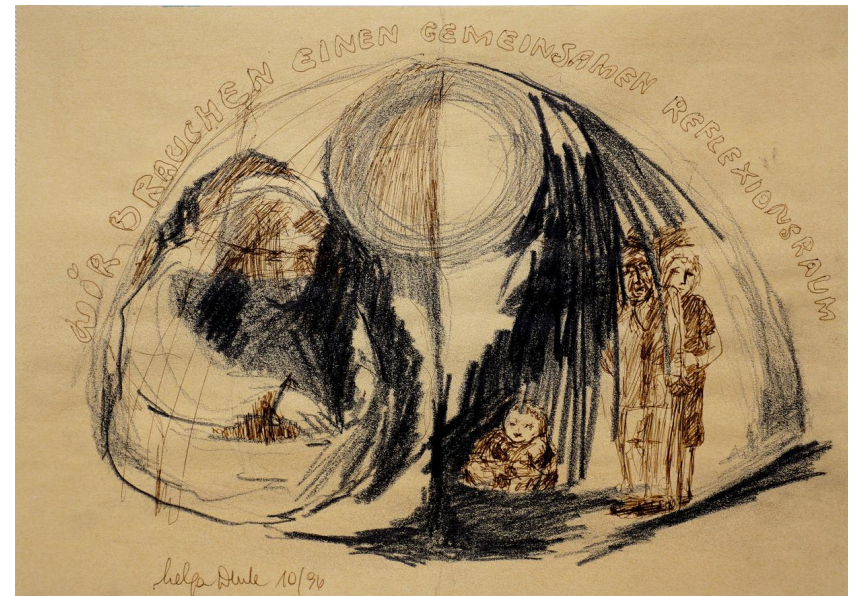 WIR BRAUCHEN EINEN GEMEINSAMEN REFLEXIONSRAUM
helga 10/96